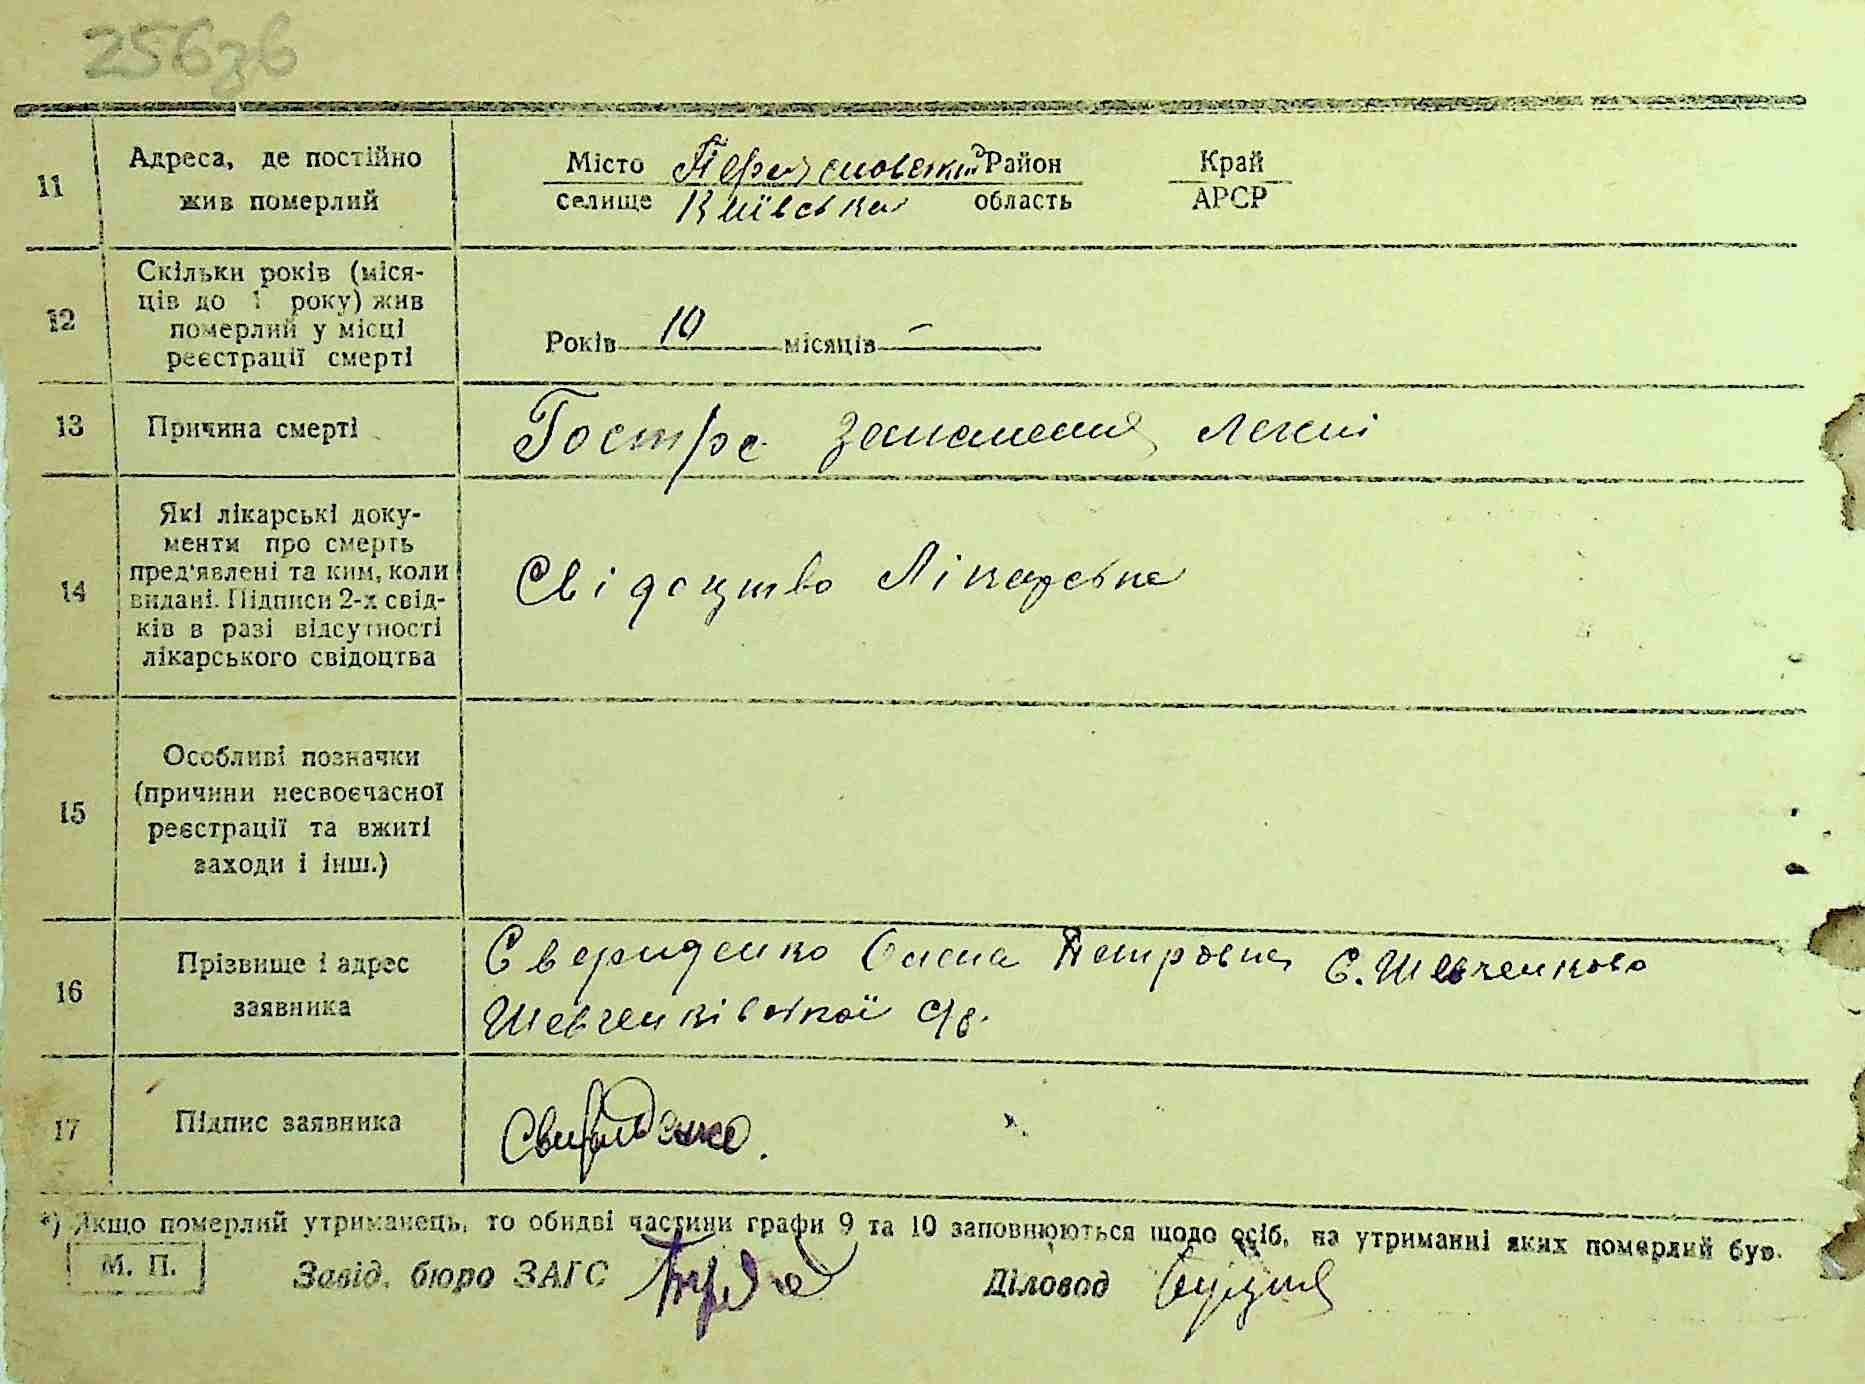 256зв
11 Адреса, де постійно жив померлий
Місто Район Край
селище Київська область АРСР
12 Скільки років (міся-
ців до 1 року) жив
померлий у місці
реєстрації смерті
Років 10 місяців –
13 Причина смерті Гостре запалення легені
14 Які лікарські доку-
менти про смерть
пред'явлені та ким, коли
видані. Підписи 2-х свід-
ків в разі відсутності
лікарського свідоцтва
Свідоцтво Лікарське
15 Особливі позначки
(причини несвоєчасної
реєстрації та вжиті
заходи і інш.)
16 Прізвище і адрес
заявника
Свериденко Олена Петровна С. Шевченково
Шевченківської с/р.
17 Підпис заявника Свириденко.
*) Якщо померлий утриманець, то обидві частини графи 9 та 10 заповнюються щодо осіб, на утриманні яких померлий був.
М. П. Завід. бюро ЗАГС Діловод